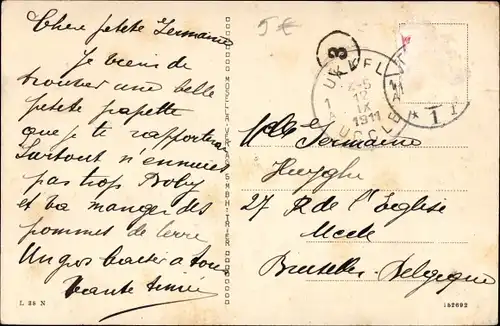 Chère petite Germaine
Je viens de
trouver une belle
petite papette
que je te rapporterai
Surtout n'ennuies
pas trop Boby
et va manger des
pommes de terre
Un gros baiser à tous
Tante
5 €
8
UKKEL
X-5
13
IX
1911
UCCLE
1
Mlle Germaine
27 R de l'Eglise
Bruxelles Belgique
MOSELLA-VERLAG G.M.B.H. TRIER
L 38 N
152692